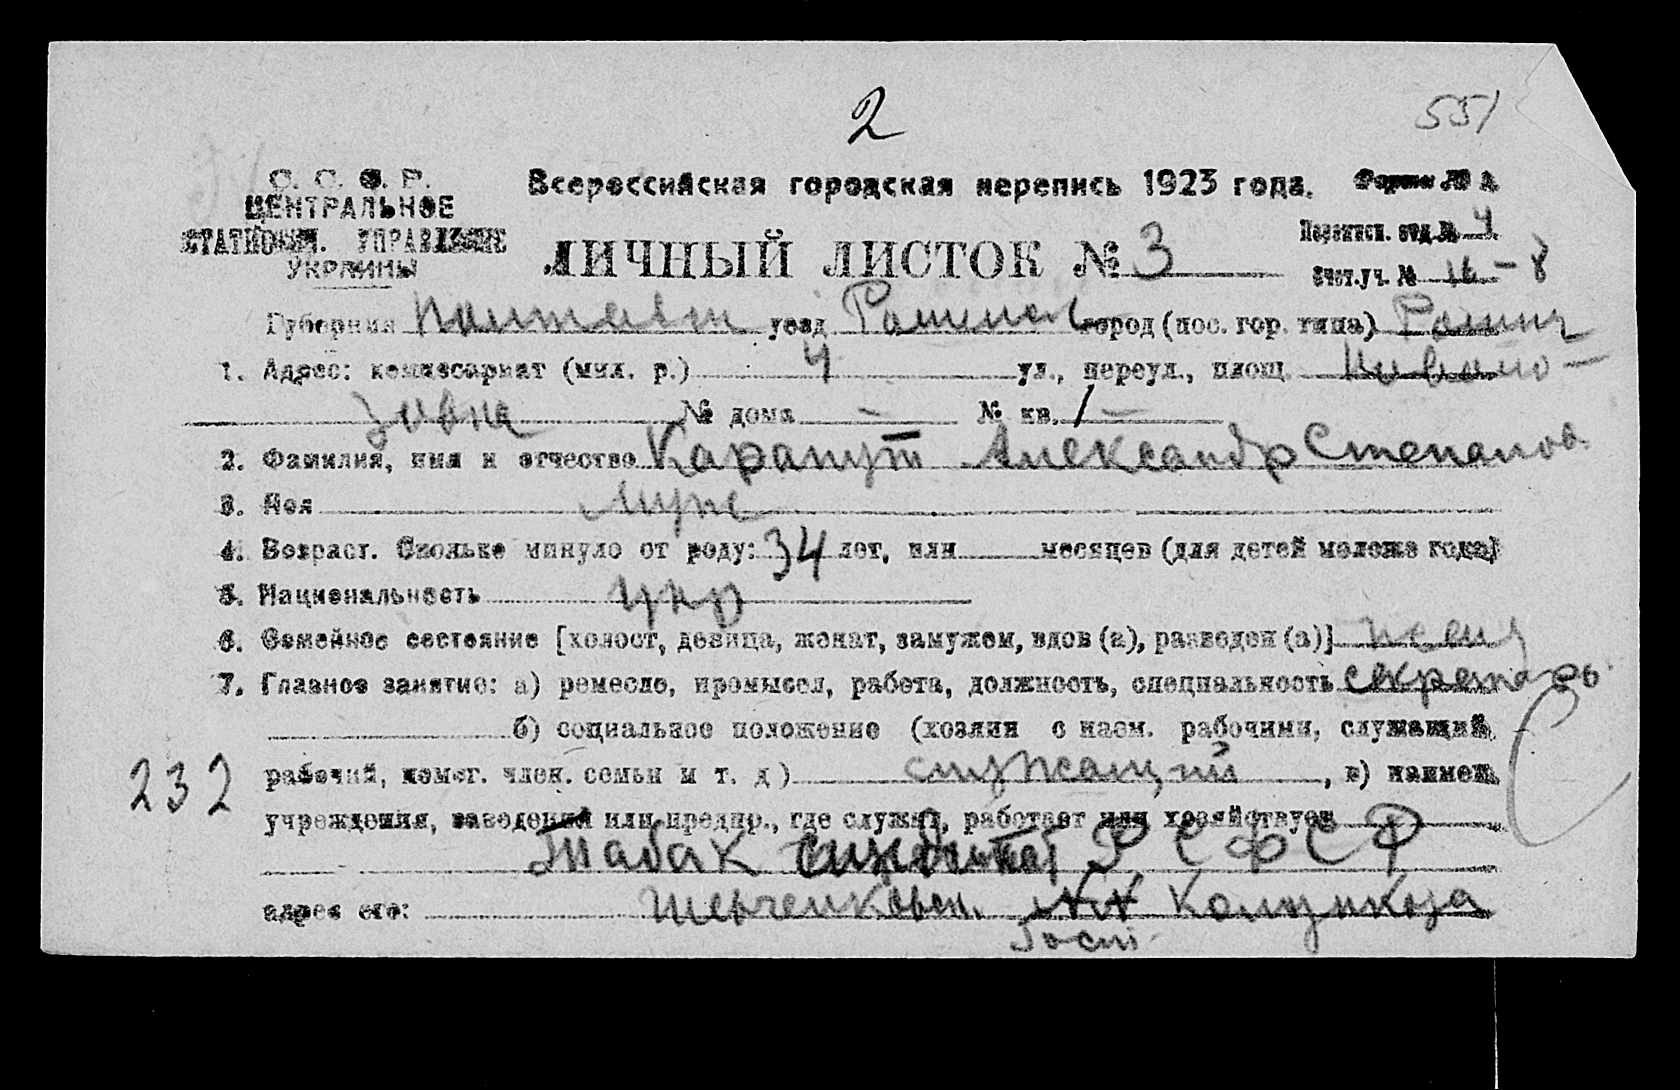 2
551
С. С. Ф. Р.
ЦЕНТРАЛЬНОЕ
СТАТИСТИЧ. УПРАВЛЕНИЕ
УКРАИНЫ
Всероссийская городская перепись 1923 года.
Форма №
Переписн. отд. № 4
ЛИЧНЫЙ ЛИСТОК № 3
Счет. уч. № 16 - 8
Губерния Полтавск уезд Роменск город (пос. гор. типа) Ромны
1. Адрес: комиссариат (мил. р.) 4 ул., переул., площ.
№ дома — № кв. 1 —
2. Фамилия, имя и отчество Карапут Александр Степанов
3. Пол Мужс
4. Возраст. Сколько минуло от роду: 34 лет, или месяцев (для детей моложе года)
5. Национальность укр
6. Семейное состояние [холост, девица, женат, замужем, вдов (а), разведен (а)] жен
7. Главное занятие: а) ремесло, промысел, работа, должность, специальность секретарь
б) социальное положение (хозяин с наем. рабочими, служащий,
232
рабочий, помог. член. семьи и т. д) служащий, в) наимен.
учреждения, заведения или предпр., где служит, работает или хозяйствует
Табак Р С Ф С Р
адрес его: Шевченковск.